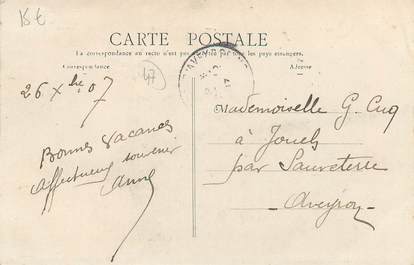 15€
CARTE POSTALE
La correspondance au recto n'est pas acceptée par tous les pays étrangers.
Correspondance
Adresse
47
AVEYRON
26 Xbre 07
Bonnes vacances
affectueux souvenir
Anne
Mademoiselle G. Cuq
à Jouels
par Sauveterre
Aveyron